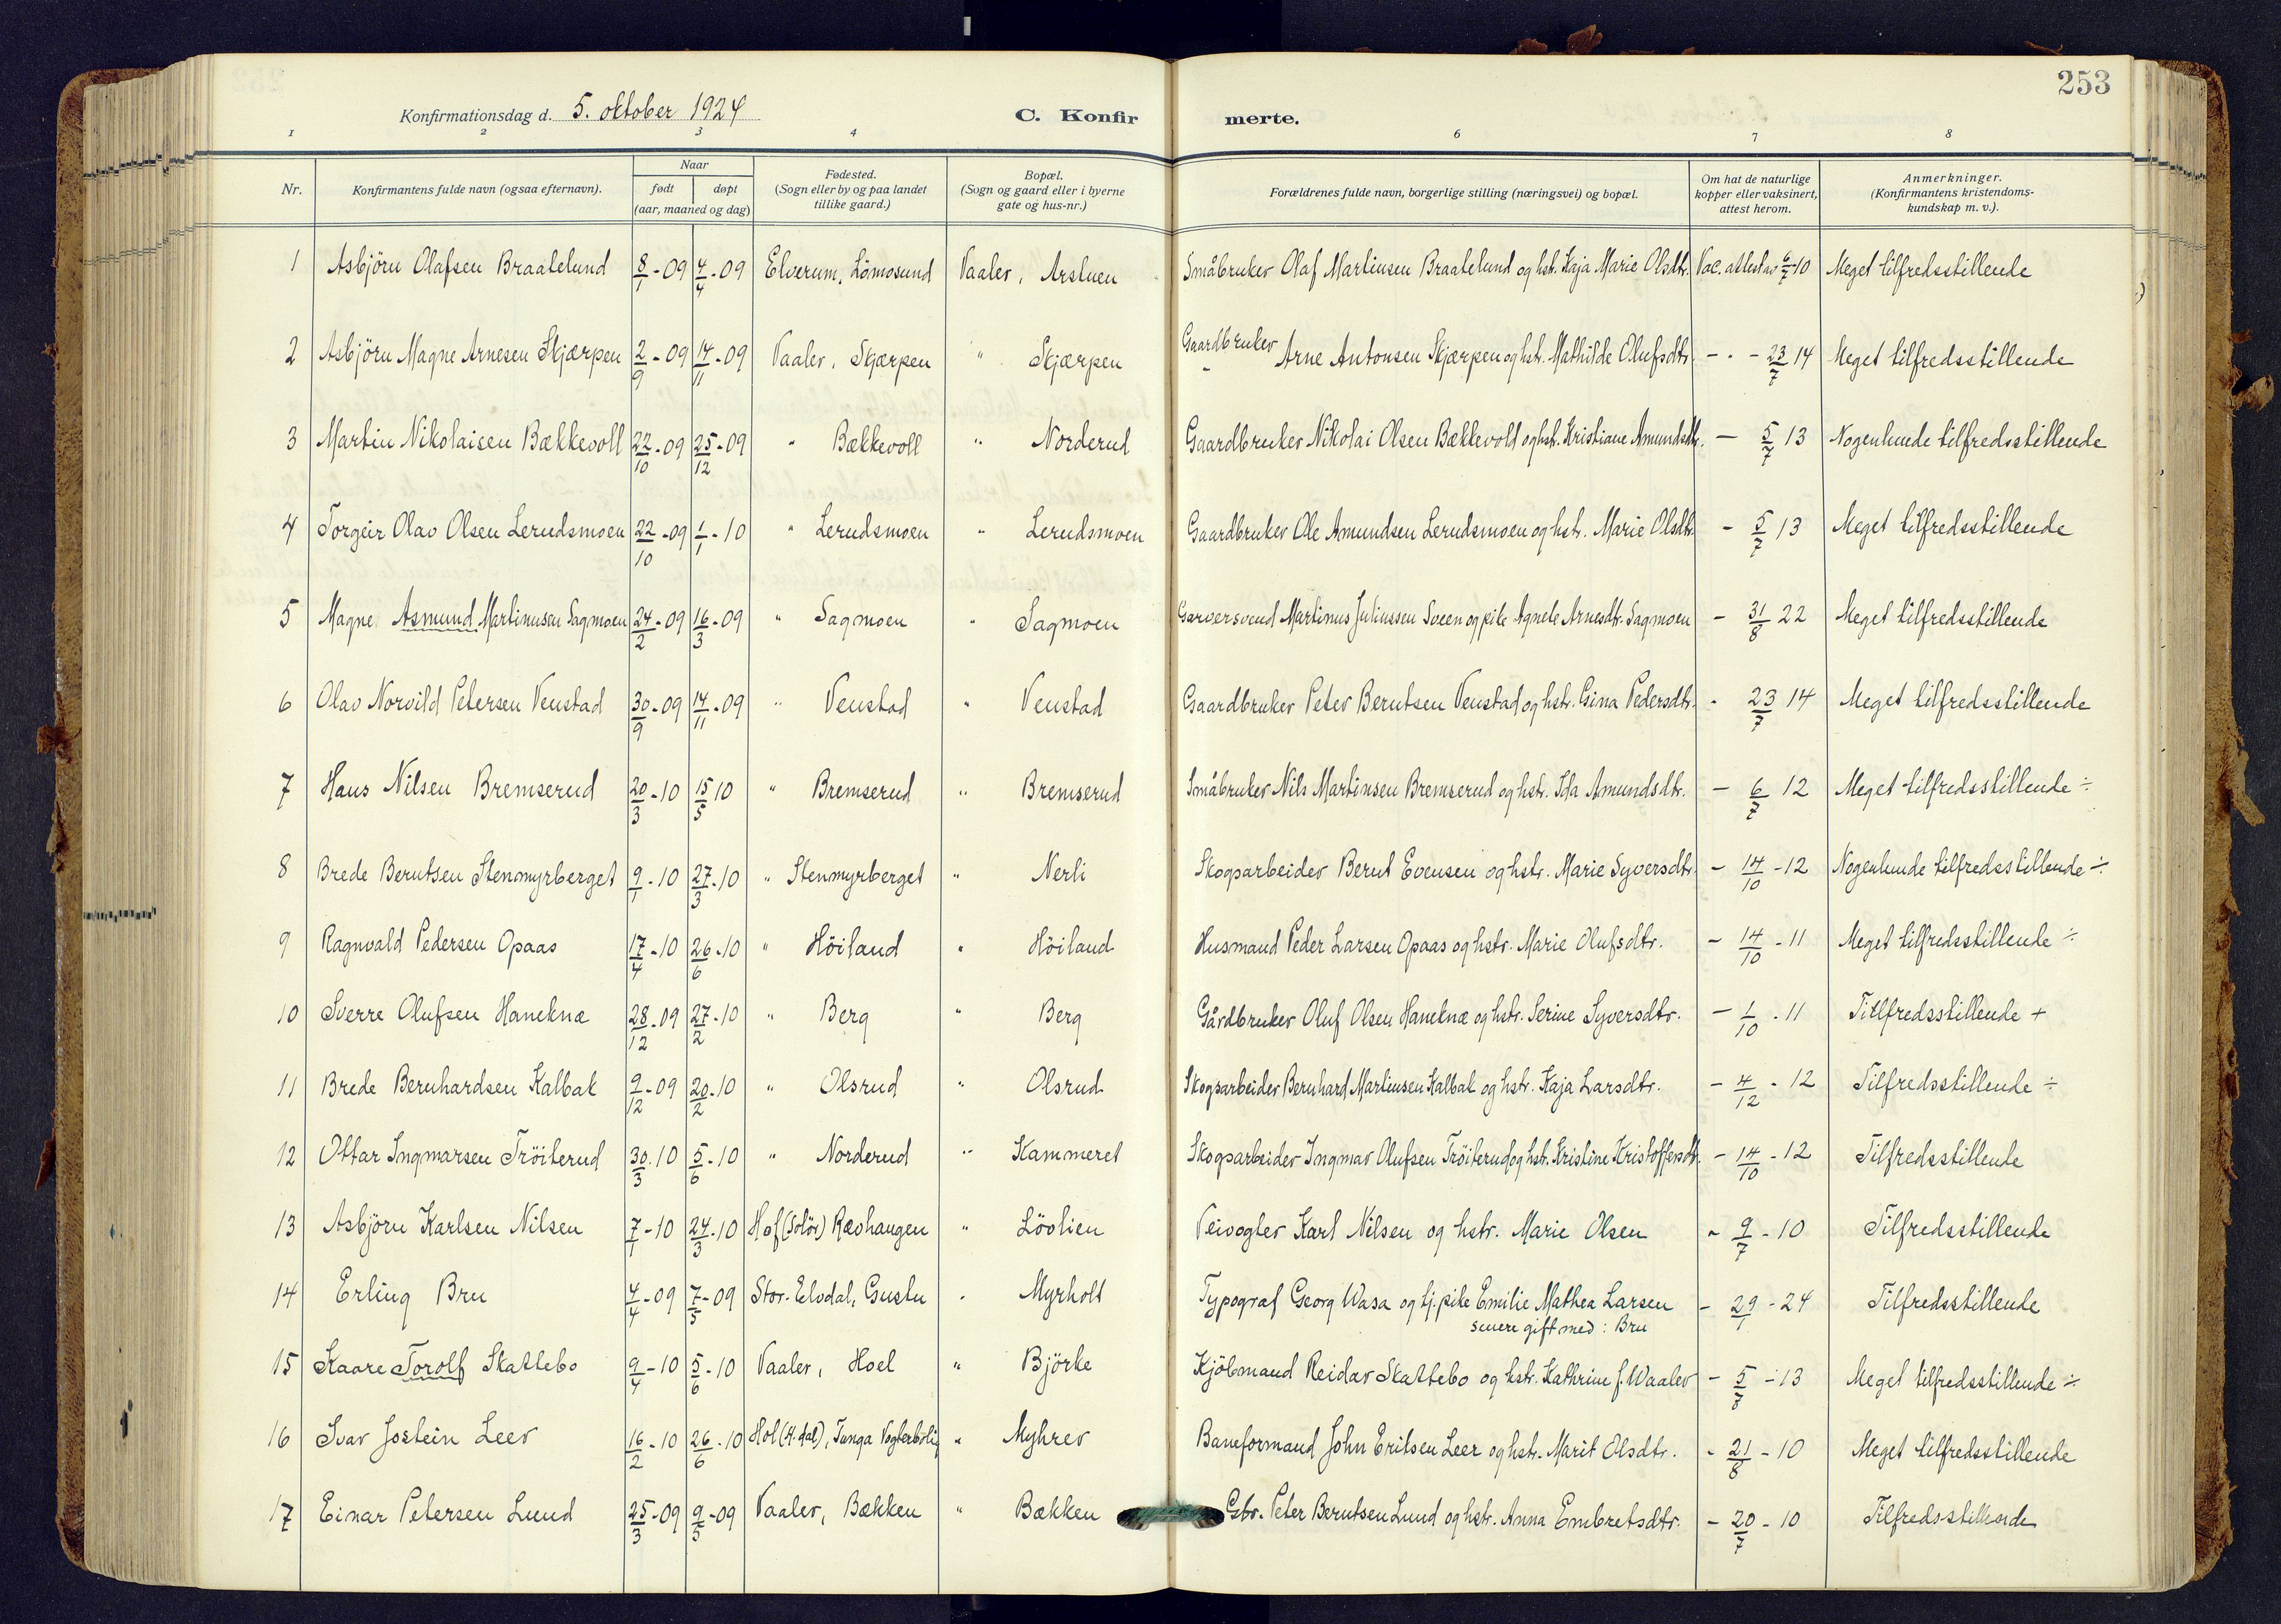 253
Konfirmationsdag d. 5. oktober 1924 C. Konfir merte.
1 2 3 4 6 7 8
Nr. Konfirmantens fulde navn (ogsaa efternavn). Naar født døpt (aar, maaned og dag) Fødested. (Sogn eller by og paa landet tillike gaard.) Bopæl. (Sogn og gaard eller i byerne gate og hus-nr.) Forældrenes fulde navn, borgerlige stilling (næringsvei) og bopæl. Om hat de naturlige kopper eller vaksinert, attest herom. Anmerkninger. (Konfirmantens kristendoms-kundskap m. v.).
1 Asbjörn Olafsen Braatelund 8/1-09 4/4-09 Elverum, Lömosund Vaaler, Arstuen Småbruker Olaf Martinsen Braatelund og hst. Kaja Marie Olsdtr. Vac. attest av 6/7 10 Meget tilfredsstillende
2 Asbjörn Magne Arnesen Skjærpen 2/9-09 14/11-09 Vaaler, Skjærpen " Skjærpen Gaardbruker Arne Antonsen Skjærpen og hst. Mathilde Olufsdtr. - " - 23/7 14 Meget tilfredsstillende
3 Martin Nikolaisen Bækkevoll 22/10-09 25/12-09 " Bækkevoll " Norderud Gaardbruker Nikolai Olsen Bækkevold og hst. Kristiane Amundsdtr. - 5/7 13 Nogenlunde tilfredsstillende
4 Torgeir Olav Olsen Lerudsmoen 22/10-09 1/1-10 " Lerudsmoen " Lerudsmoen Gaardbruker Ole Amundsen Lerudsmoen og hstr. Marie Olsdtr. - 5/7 13 Meget tilfredsstillende
5 Magne Asmund Martinusen Sagmoen 24/2-09 16/3-09 " Sagmoen " Sagmoen Garversvend Martinus Juliussen Sveen og pike Agnete Arnesdtr. Sagmoen - 31/8 22 Meget tilfredsstillende
6 Olav Norvild Petersen Venstad 30/9-09 14/11-09 " Venstad " Venstad Gaardbruker Peter Berntsen Venstad og hstr. Gina Pedersdtr. - 23/7 14 Meget tilfredsstillende
7 Hans Nilsen Bremserud 20/3-10 15/5 10 " Bremserud " Bremserud Småbruker Nils Martinsen Bremserud og hstr. Ida Amundsdtr. - 6/7 12 Meget tilfredsstillende ÷
8 Brede Berntsen Stenmyrberget 9/1-10 27/3-10 " Stenmyrberget " Nerli Skogsarbeider Bernt Evensen og hstr. Marie Syversdtr. - 14/10-12 Nogenlunde tilfredsstillende ÷
9 Ragnvald Pedersen Opaas 17/4-10 26/6-10 " Höiland " Höiland Husmand Peder Larsen Opaas og hstr. Marie Olufsdtr. - 14/10-11 Meget tilfredsstillende ÷
10 Sverre Olufsen Haneknæ 28/12-09 27/2-10 " Berg " Berg Gårdbruker Oluf Olsen Haneknæ og hstr. Serine Syversdtr. - 1/10-11 Titlfredsstillende +
11 Brede Bernhardsen Kalbak 9/12-09 20/2-10 " Olsrud " Olsrud Skogsarbeider Bernhard Martinsen Kalbak og hstr. Kaja Larsdtr. - 4/12-12 Tilfredsstillende ÷
12 Ottar Ingmarsen Tröiterud 30/3.10 5/6-10 " Norderud " Kammeret Skogsarbeider Ingmar Olufsen Tröiterud og hstr. Kristine Kristoffersdtr. - 14/10-12 Tilfredsstillende
13 Asbjörn Karlsen Nilsen 7/1-10 24/3-10 Hof (Solör) Rævhaugen " Lövlien Veivogter Karl Nilsen og hstr. Marie Olsen - 9/7-10 Tilfredsstillende
14 Erling Bru 4/4-09 7/5-09 Stor-Elvdal, Gustu " Myrholt Typograf Georg Wasa og tj.pike Emilie Mathea Larsen - 29/1-24 Tilfredsstillende
senere gift med: Bru
15 Kaare Torolf Skattebo 9/4-10 5/6-10 Vaaler, Hoel " Björke Kjöbmand Reidar Skattebo og hstr. Kathrine f. Waaler - 5/7-13 Meget tilfredsstillende ÷
16 Ivar Jostein Leer 16/2-10 26/6-10 Hol (H.dal), Tunga Vogterbolig " Myhrer Baneformand John Eriksen Leer og hstr. Marit Olsdtr. - 21/8-10 Meget tilfredsstillende
17 Einar Petersen Lund 25/3-09 9/5-09 Vaaler, Bækken " Bækken Gbr. Peter Berntsen Lund og hstr. Anna Embretsdtr. - 20/7-10 Tilfredsstillende